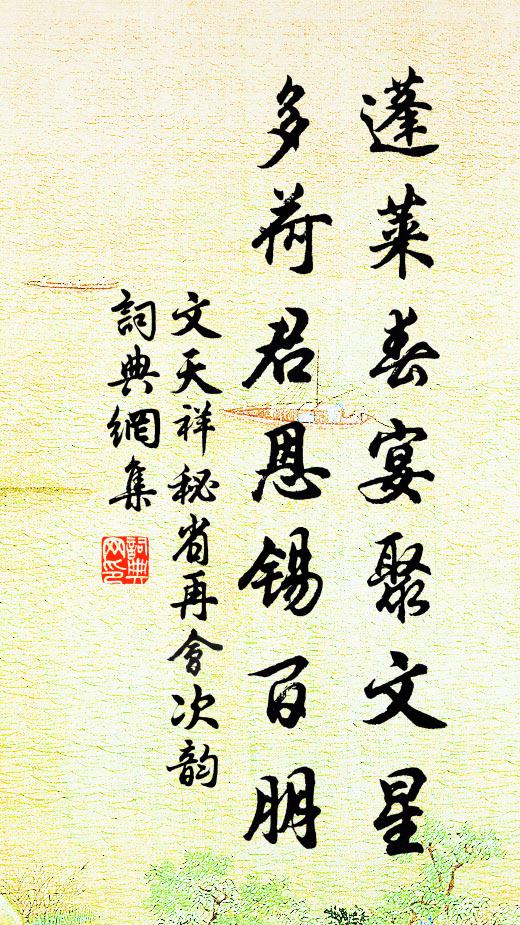 蓬莱春宴聚文星
多荷君恩锡百朋
文天祥秘省再會次韵
詞典網集
詞典网印